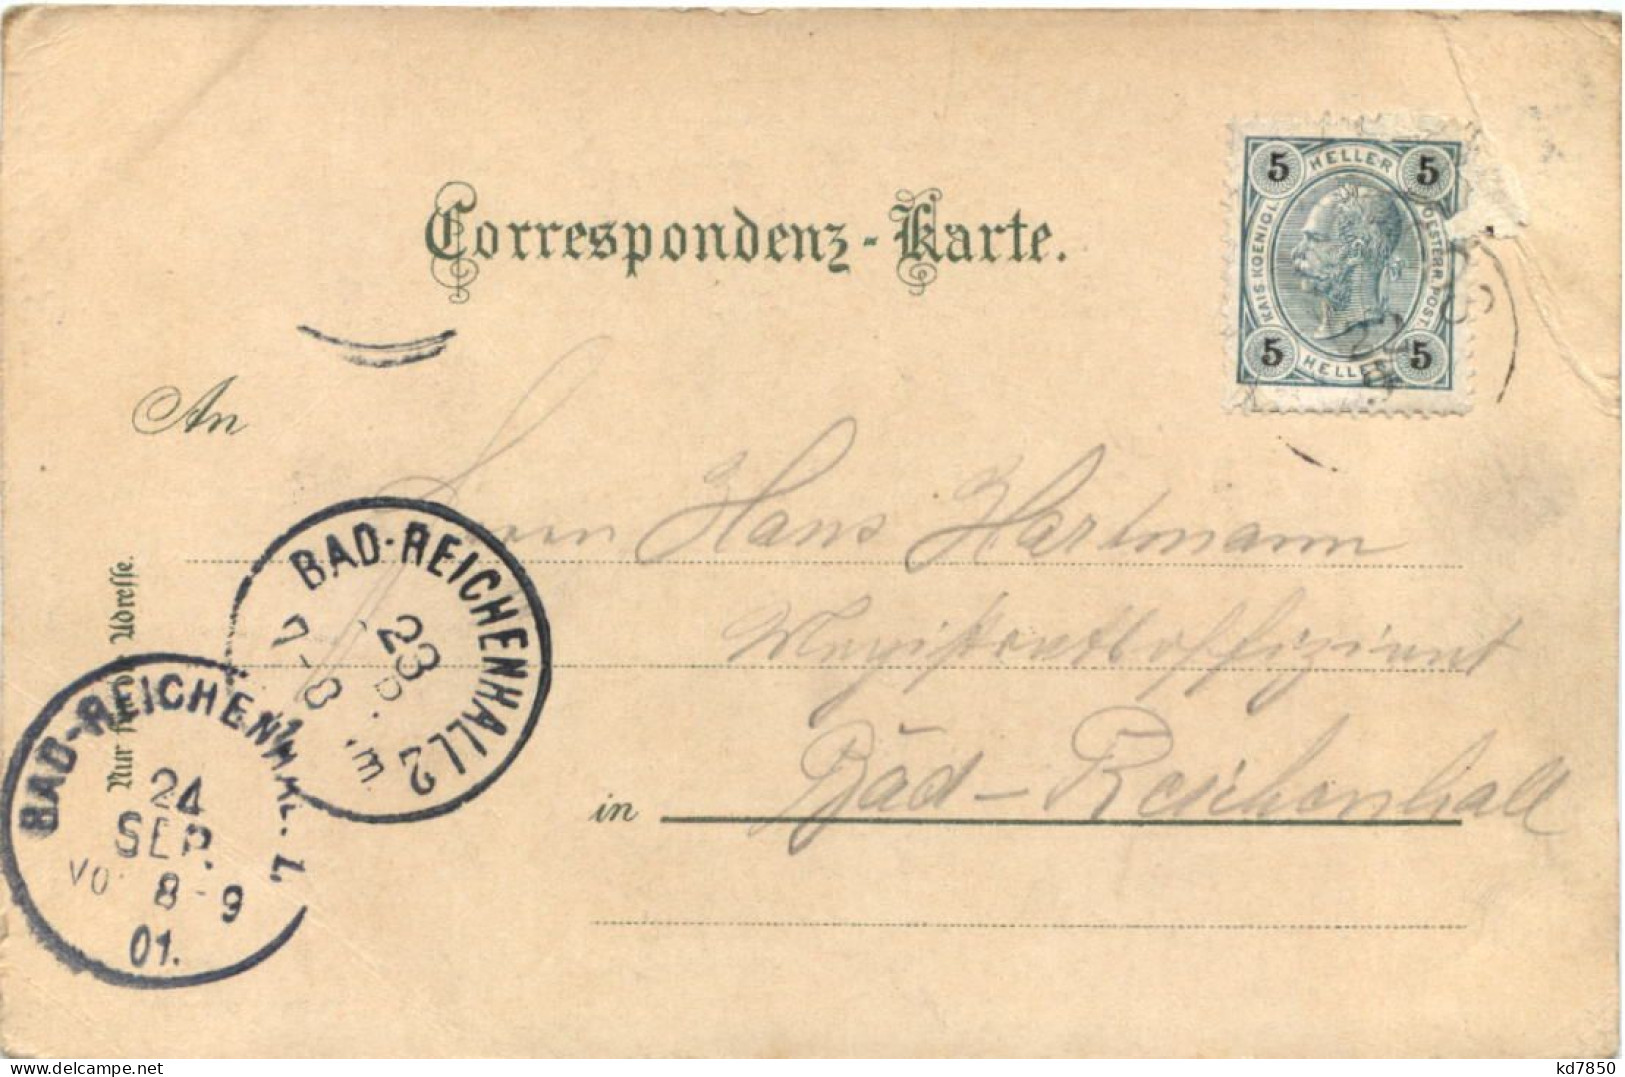 Correspondenz-Karte.
5 HELLER 5
KAIS. KOENIGL. OESTERR. POST
5 HELLER 5
22
An
Herrn Hans Hartmann
Magistratsoffiziant
in Bad-Reichenhall
Nur für die Adresse.
BAD-REICHENHALL 2
23
7-8
BAD-REICHENHALL. 1.
24
SEP.
VO 8-9
01.
www.delcampe.net
kd7850